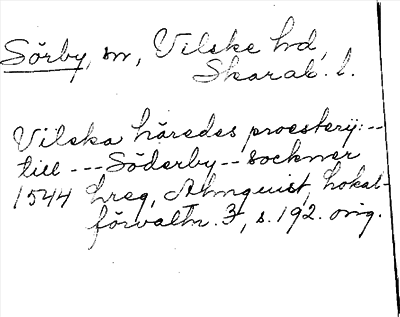 Sörby, sn, Vilske hd,
Skarab. l.
Vilska häredes proestery:--
till --- Söderby -- sockner
1544 hreg, Almquist, Lokal-
förvaltn. 3, s. 192. orig.